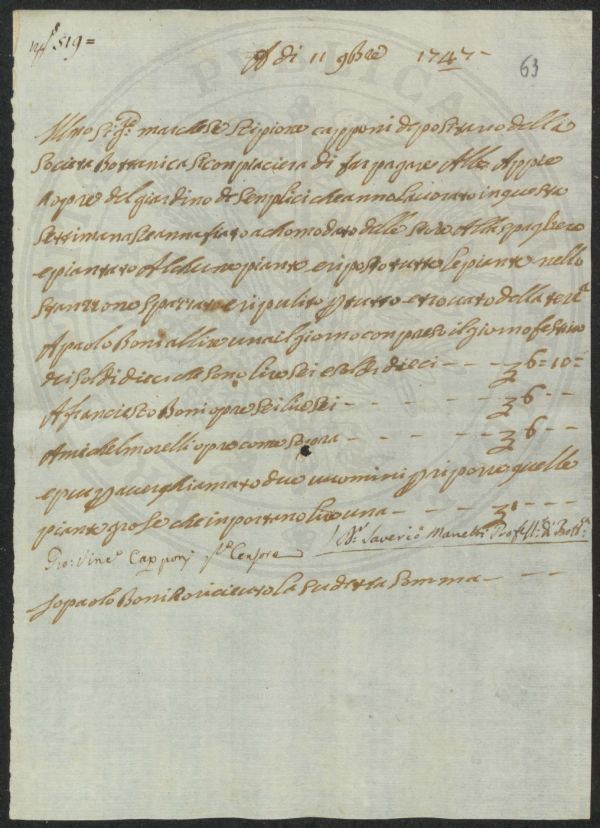 519=
A di 11 9bre 1747-
63
Illmo Sig.re marchese Scipione capponi depositario della
Societa Bottanica si conpiacera di far pagare Alle Appie
Ropre del giardino de Senplici che anno lavorato in questa
Settimana Se annafiato achomodato delle store Alla Spagliere
epiantato Alchune piante e riposto tutte le piante nello
Stanzzone Spazzato e ripulito p tutto e trovato della terra
A paolo Boni allire una il giorno conpreso il giorno festivo
di soldi dieci che sono lire sei e soldi dieci - - - 6=10=
A franciesco Boni opre sei lire sei - - - - - 6 - -
A michel morelli opre come Sopra - - - - 6 - -
e piu p aver ghiamato due uuomini p riporre quelle
piante grose che inportano lire una - - - - - 1 - -
Gio: Vinc.o Capponi p.o Censore
D.r Saverio Manetti Profess.e di Bott.a
Io paolo Boni o ricieuto la Sudetta Somma - - - -
PUBLICA